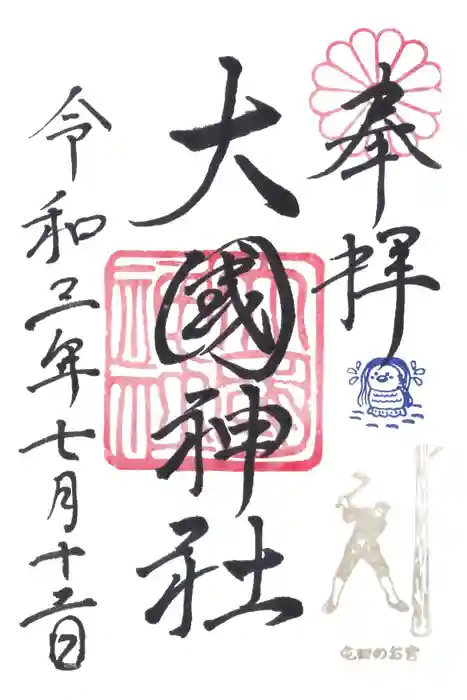 奉拝
大國神社
令和三年七月十二日
屯田のお宮